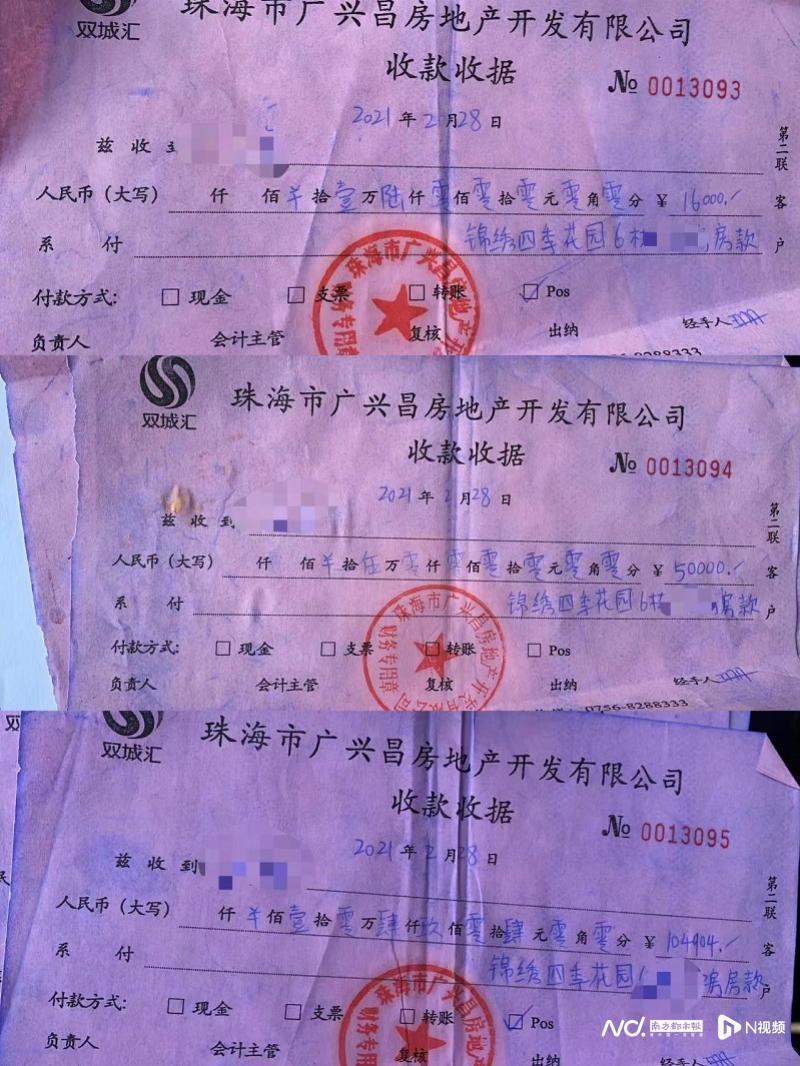 双城汇
珠海市广兴昌房地产开发有限公司
收款收据
№ 0013093
2021年2月28日
兹收到
人民币（大写） 仟 佰￥拾壹万陆仟零佰零拾零元零角零分 ￥16000./
系 付 锦绣四季花园6栋 房款
付款方式: □ 现金 □ 支票 □ 转账 ☑ Pos
负责人 会计主管 复核 出纳 经手人
第二联 客户
珠海市广兴昌房地产开
财务专用章
0756-8288333
双城汇
珠海市广兴昌房地产开发有限公司
收款收据
№ 0013094
2021年2月28日
兹收到
人民币（大写） 仟 佰￥拾伍万零仟零佰零拾零元零角零分 ￥50000./
系 付 锦绣四季花园6栋 房款
付款方式: □ 现金 □ 支票 □ 转账 □ Pos
负责人 会计主管 复核 出纳 经手人
第二联 客户
珠海市广兴昌房地产开发有限公司
财务专用章
0756-8288333
双城汇
珠海市广兴昌房地产开发有限公司
收款收据
№ 0013095
2021年2月28日
兹收到
人民币（大写） 仟￥佰壹拾零万肆仟玖佰零拾肆元零角零分 ￥104904./
系 付 锦绣四季花园 房款
付款方式: □ 现金 □ 支票 □ 转账 ☑ Pos
负责人 会计主管 复核 出纳 经手人
第二联 客户
珠海市广兴昌房地产
财务专用
南方都市报
N视频